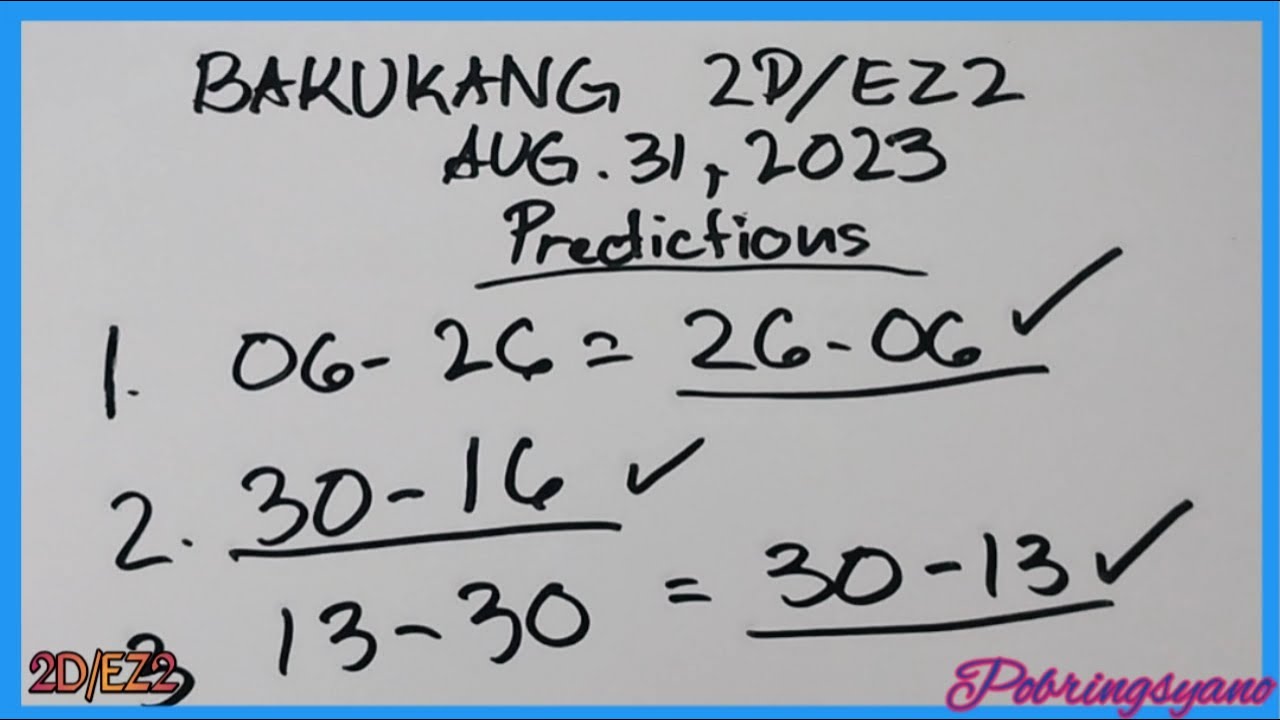 BAKUKANG 2D/EZ2
AUG. 31, 2023
Predictions
1. 06 - 26 = 26 - 06 ✓
2. 30 - 16 ✓
3 13 - 30 = 30 - 13 ✓
2D/EZ2
Pobringsyano